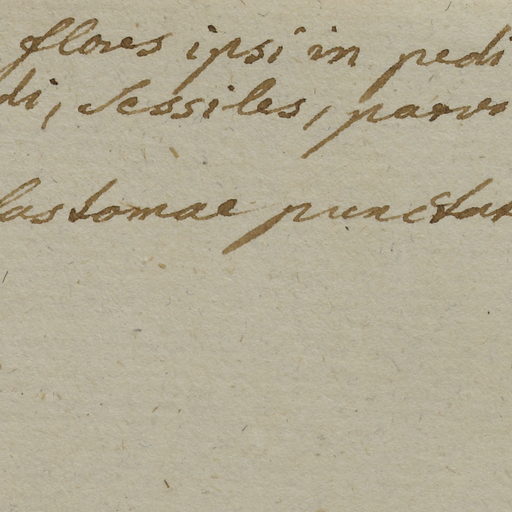 flores ipsi in pedi
di, sessiles, parvi
lastomae punctat